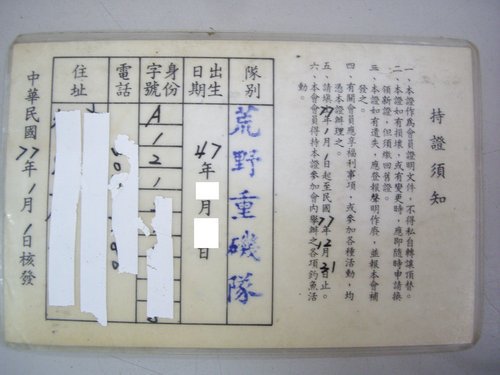 持證須知
一、本證作為會員證明文件，不得私自轉讓頂替。
二、本證如有損壞，或有變更時，應即隨時申請換
領新證，但須繳回舊證。
三、本證如有遺失，應登報聲明作廢，並報本會補
發之。
四、有關會員應享福利事項，或參加各種活動，均
憑本證辦理之。
五、請填77年1月1日起至民國77年12月31日止。
六、本會會員得持本證參加會內舉辦之各項釣魚活
動。
隊別 荒野重磯隊
出生日期 47年 月 日
身份字號 A121
電話
住址
中華民國77年1月1日核發